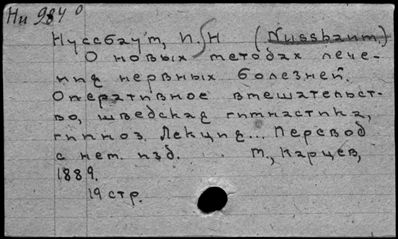 Ни 984
Нуссбаум, И. Н (Nussbaum.)
О новых методах лече-
ния нервных болезней.
Оперативное вмешательст-
во, шведская гимнастика,
гипноз. Лекция... Перевод
с нем. изд. М., Карцев,
1889.
19 стр.